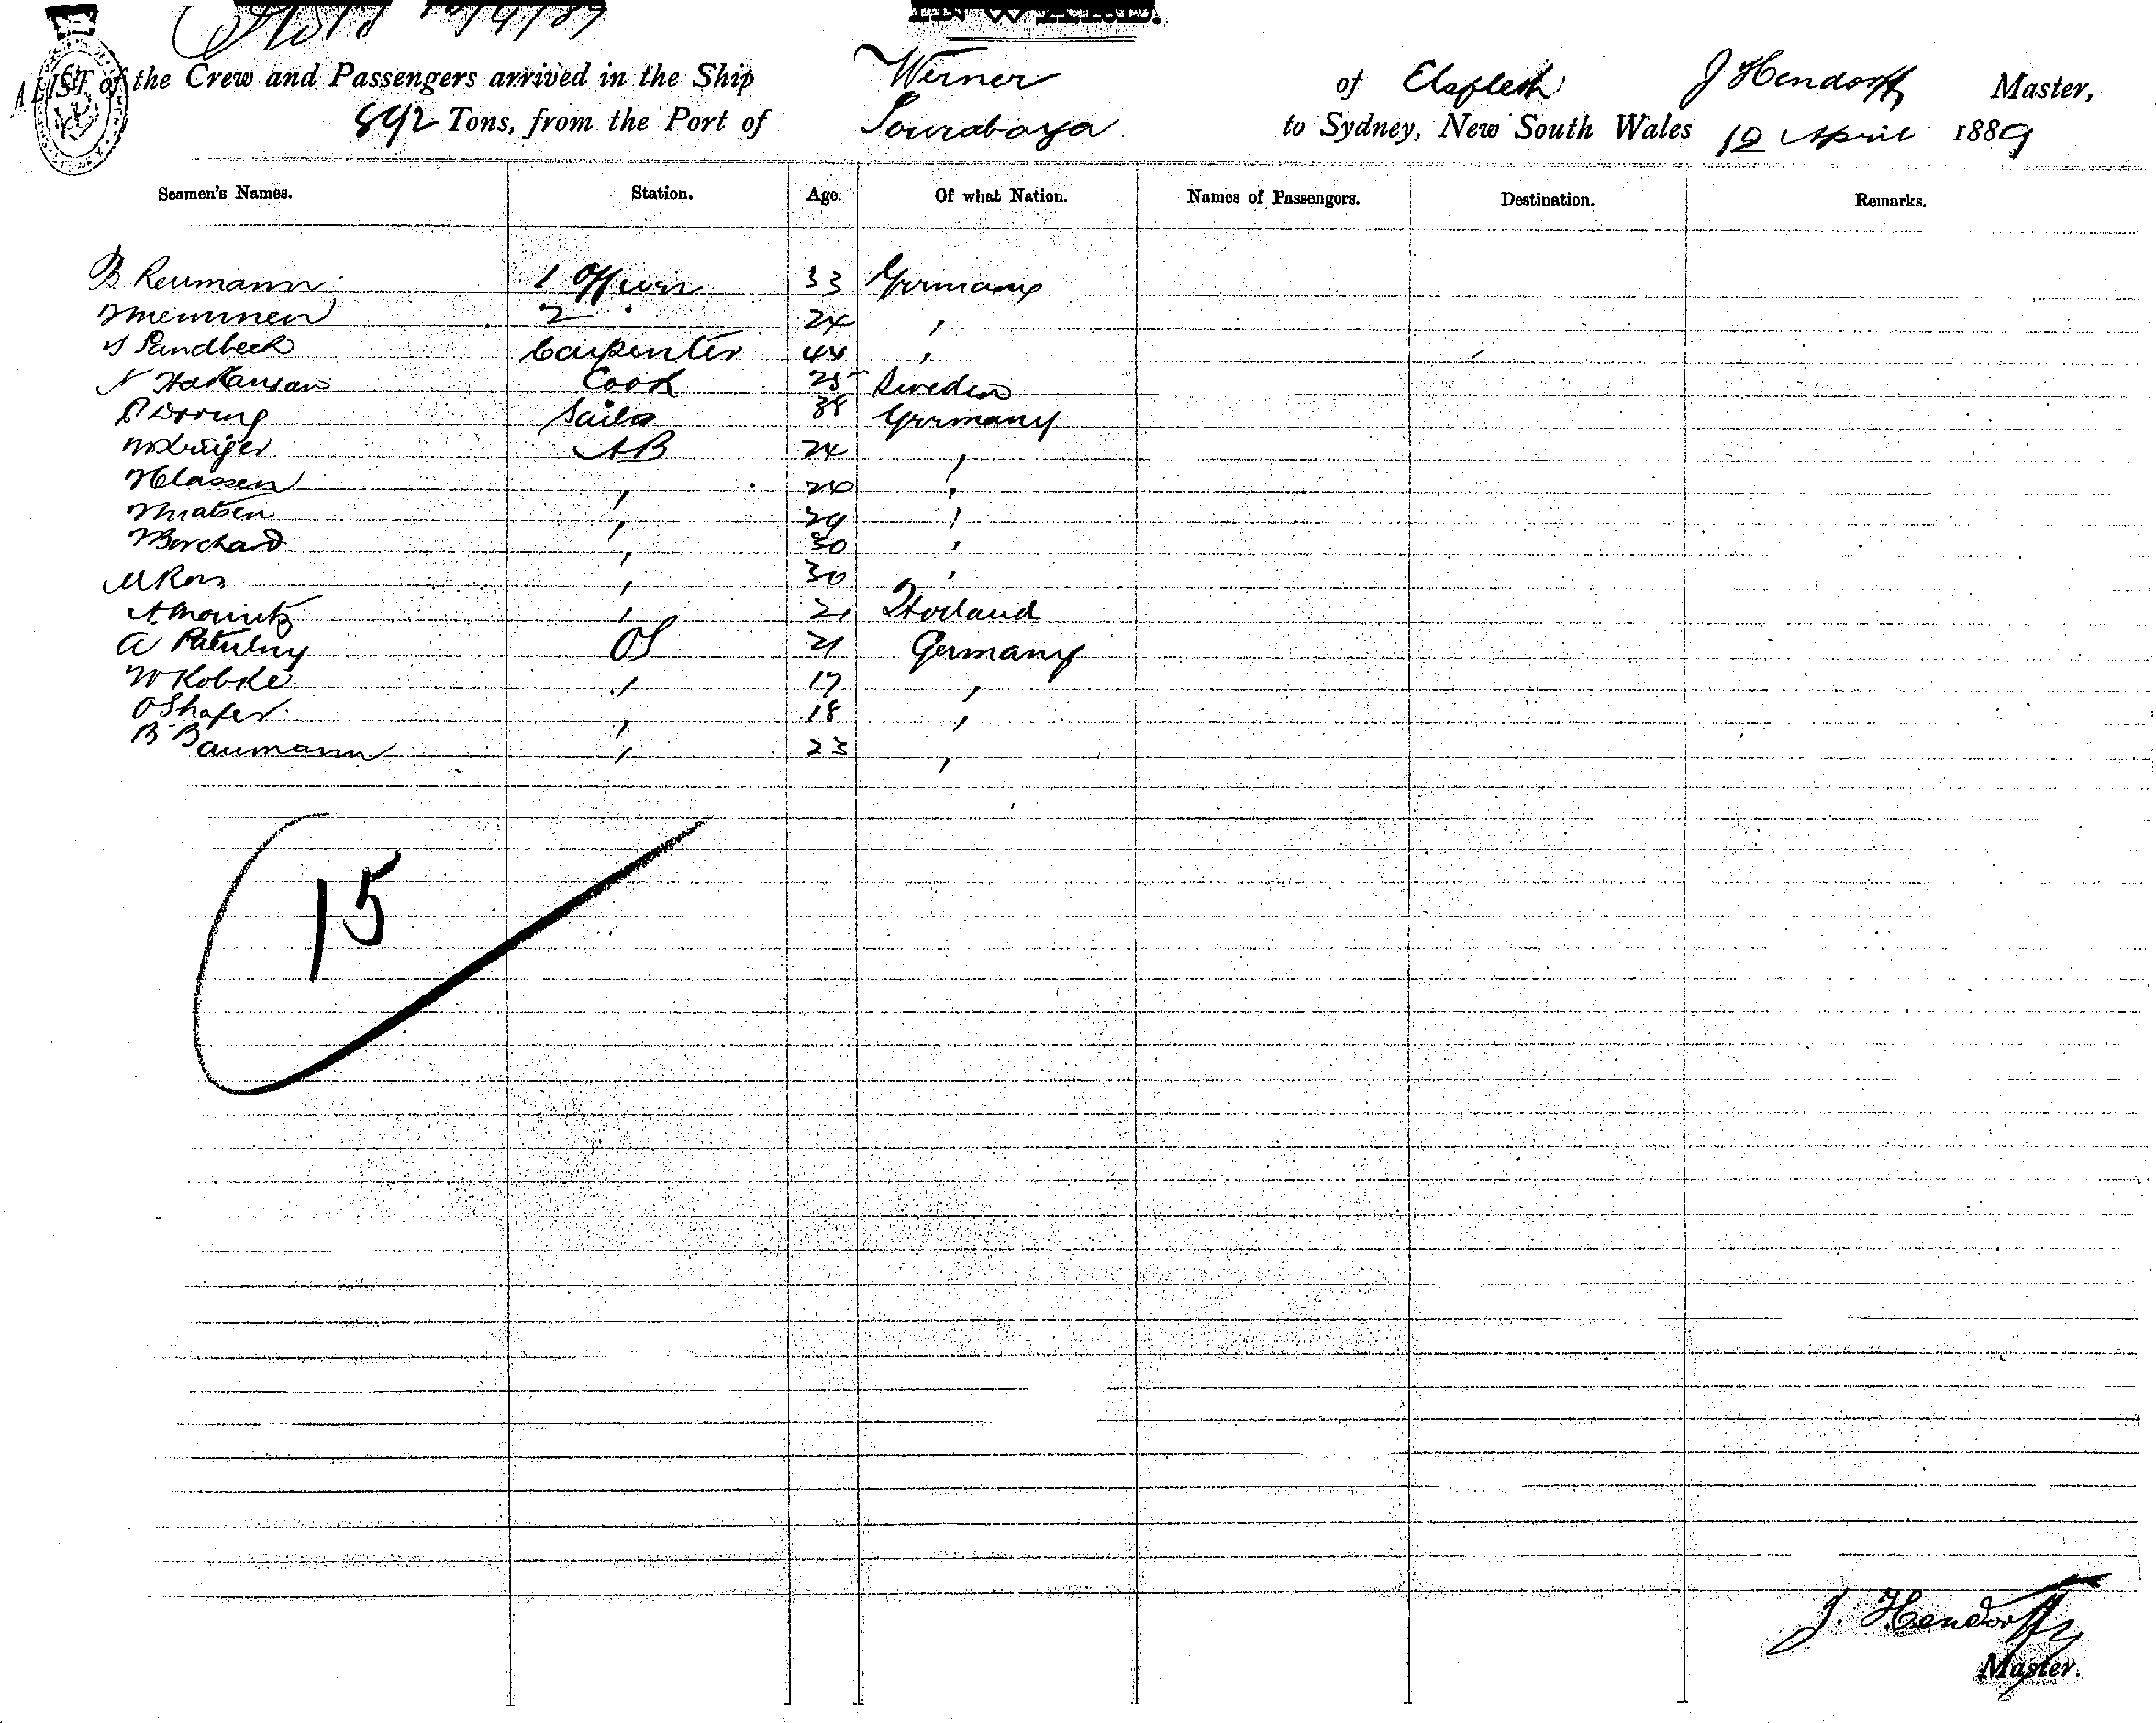 INWARD.
A LIST of the Crew and Passengers arrived in the Ship Werner of Elsfleth J Hendorff Master,
892 Tons, from the Port of Sourabaya to Sydney, New South Wales 12 April 1889
Seamen's Names. Station. Age. Of what Nation. Names of Passengers. Destination. Remarks.
B Reumann 1 Officer 33 Germany
Memmen 2 " 24 "
Sandbeck Carpenter 44 "
N Hakansan Cook 25 Sweden
Dorring Sailo 38 Germany
M Krüger AB 24 "
H Classen " 20 "
" 29 "
Borchard " 30 "
M Ross " 30 "
A Mouritz " 21 Holland
A OS 21 Germany
W Kobke " 17 "
O Shafer " 18 "
B Baumann " 23 "
15
J. Hendorff
Master.